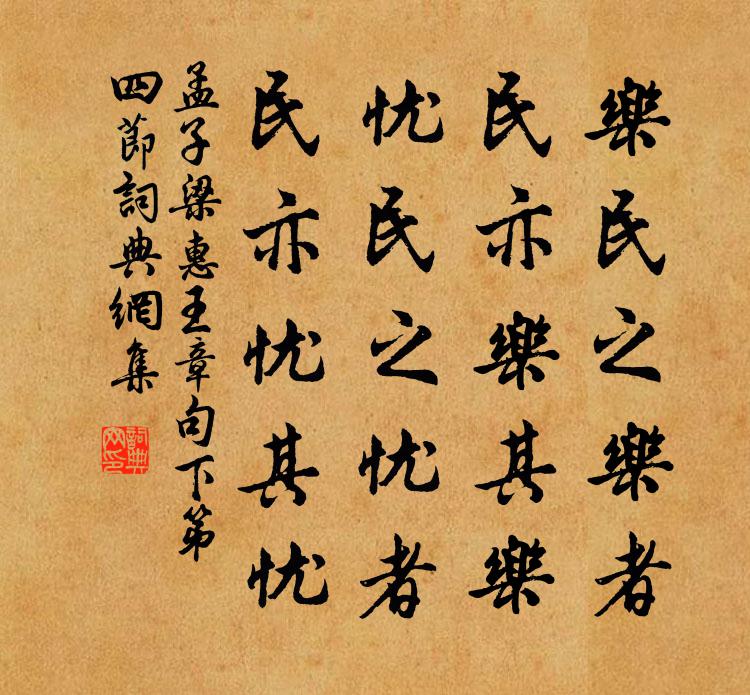 樂民之樂者
民亦樂其樂
忧民之忧者
民亦忧其忧
孟子梁惠王章句下第
四節詞典網集
詞典
网印